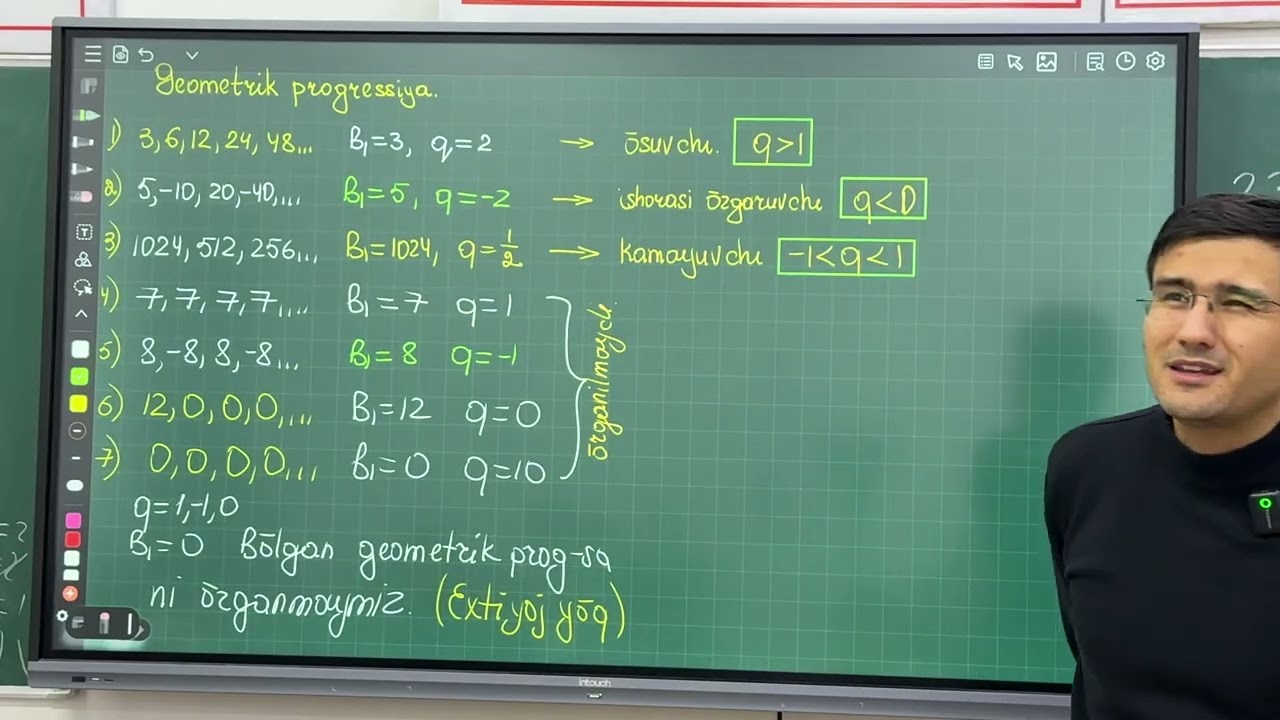 Geometrik progressiya.
1) 3, 6, 12, 24, 48... b₁=3, q=2 → ōsuvchi. q>1
2) 5, -10, 20, -40,... b₁=5, q=-2 → ishorasi ōzgaruvchi q<0
3) 1024, 512, 256... b₁=1024, q=1/2 → kamayuvchi -1<q<1
4) 7, 7, 7, 7,... b₁=7 q=1
5) 8, -8, 8, -8... b₁=8 q=-1
6) 12, 0, 0, 0,... b₁=12 q=0
7) 0, 0, 0, 0,... b₁=0 q=10
q=1,-1,0
b₁=0 Bōlgan geometrik prog-sa
ni ōrganmaymiz. (Extiyoj yōq)
intouch